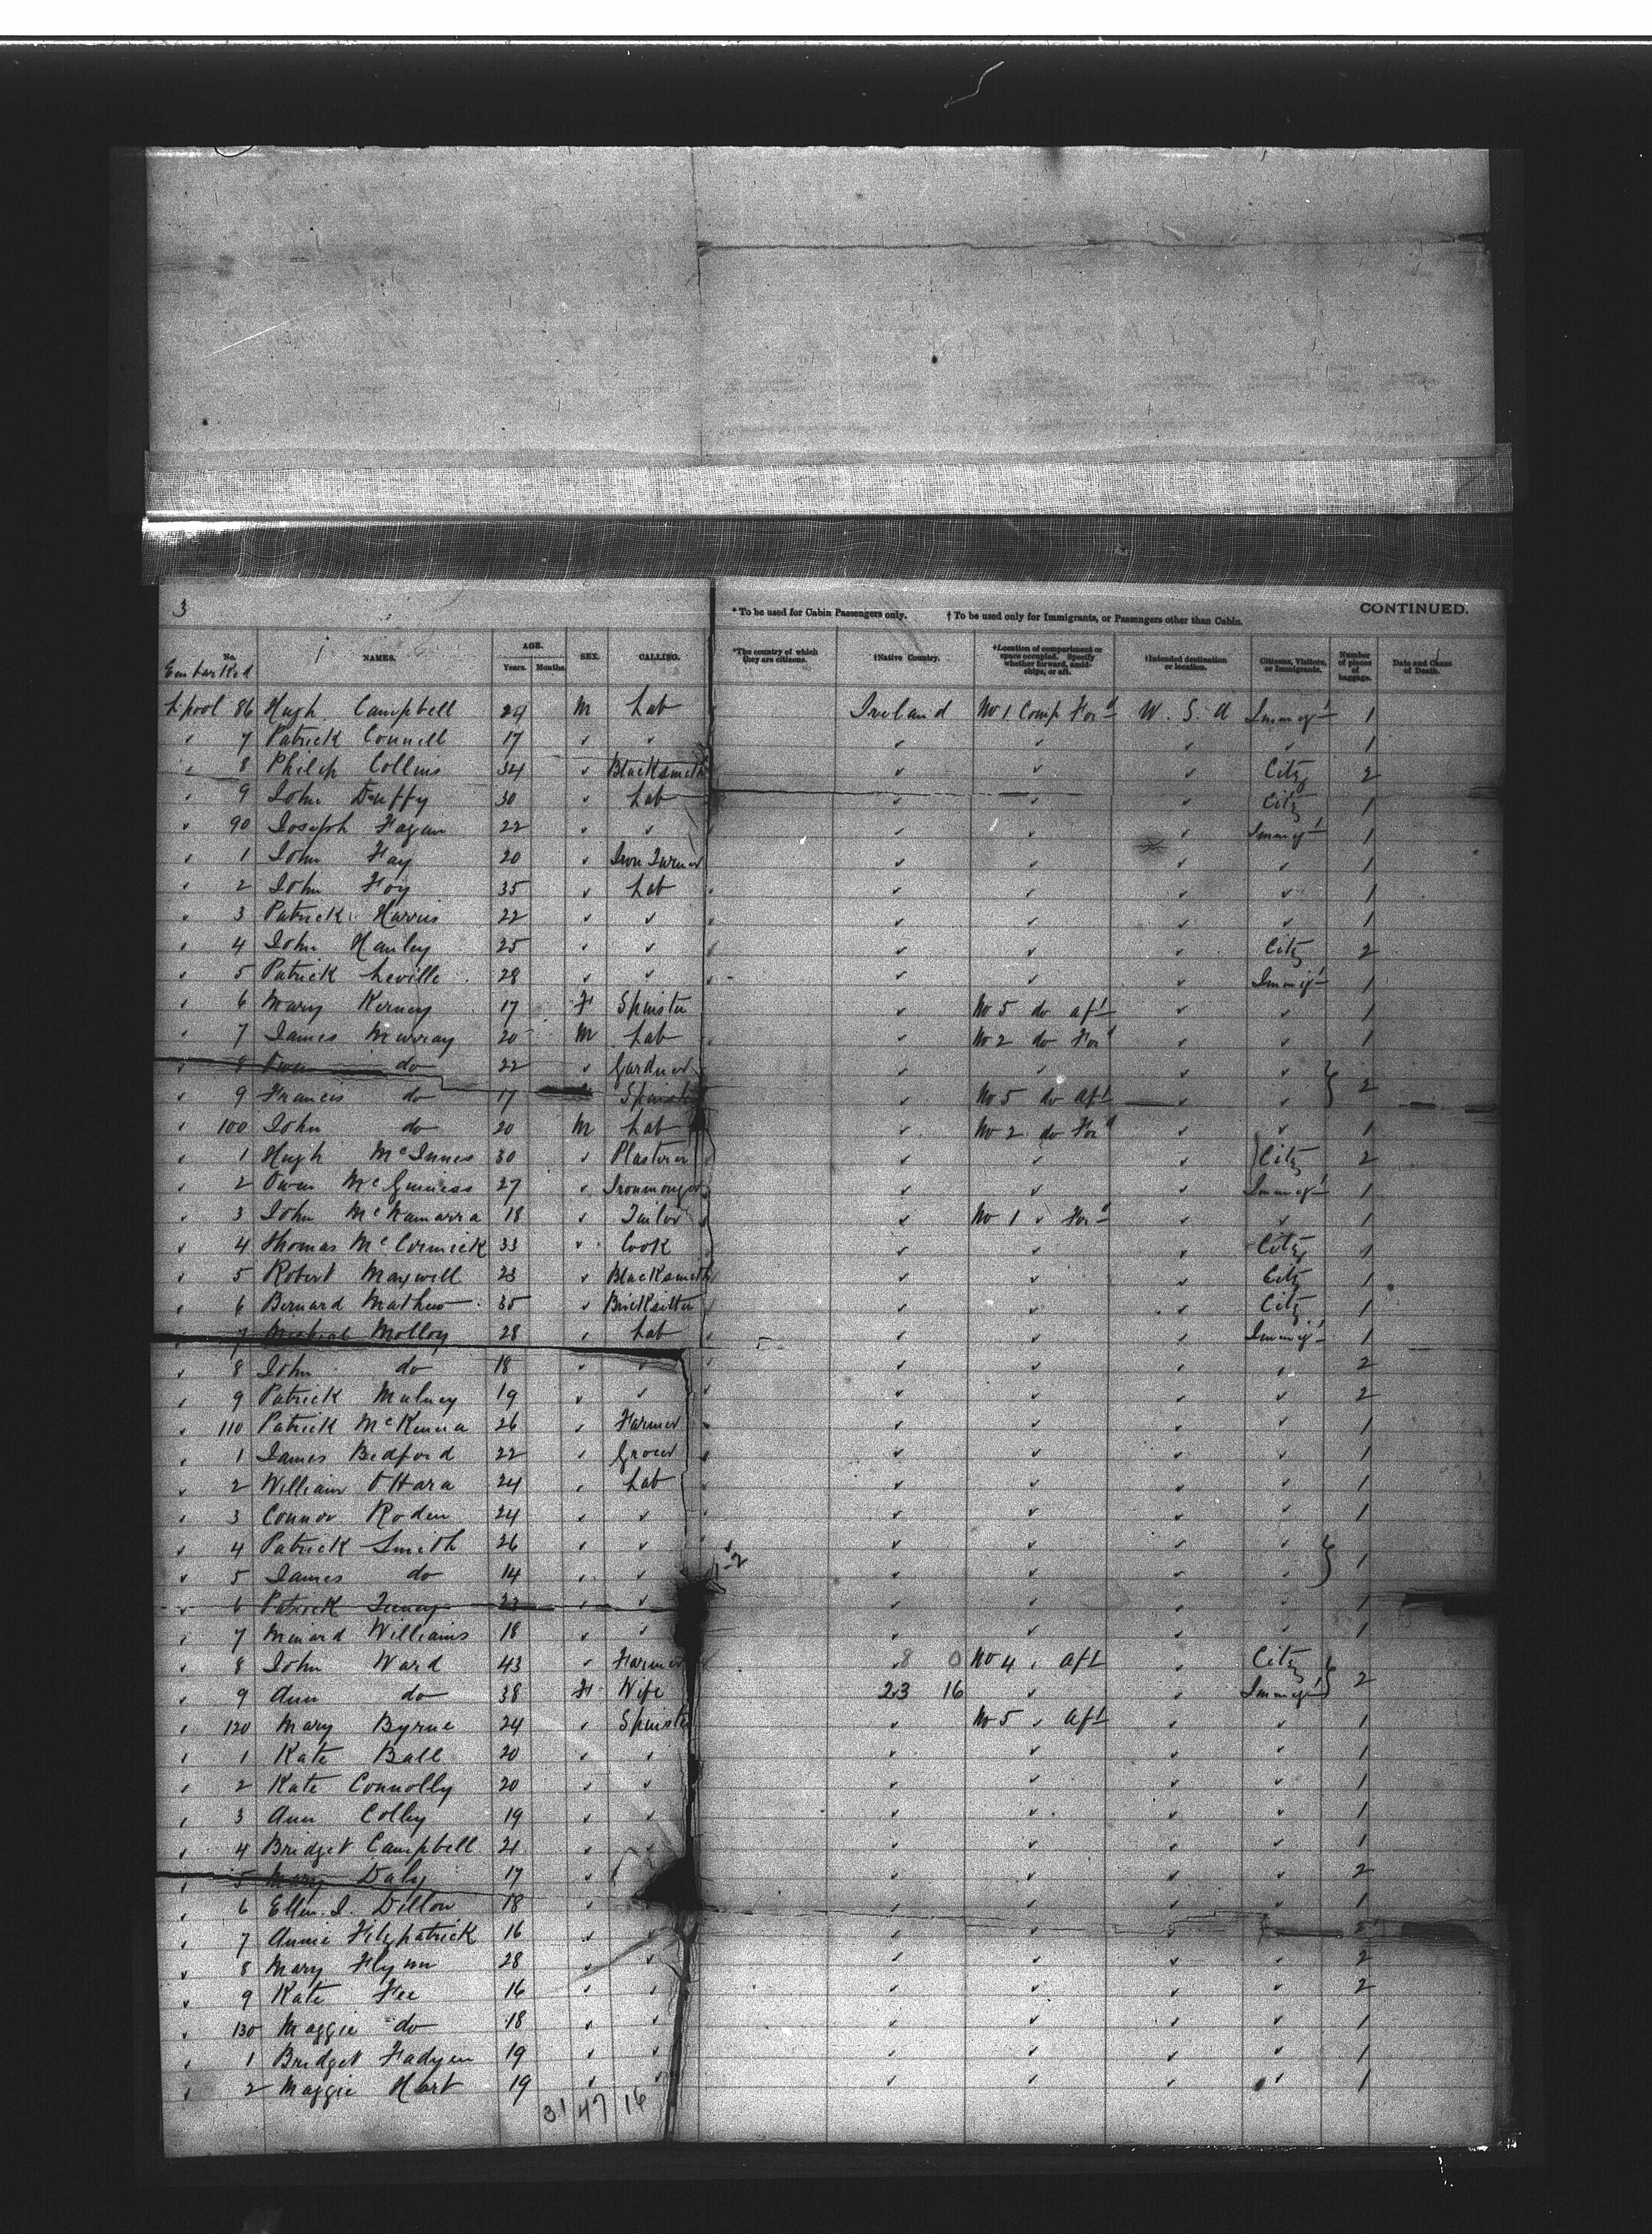 3
* To be used for Cabin Passengers only. † To be used only for Immigrants, or Passengers other than Cabin. CONTINUED.
No. NAMES. AGE. Years. Months. SEX. CALLING. *The country of which they are citizens. †Native Country. †Location of compartment or space occupied. Specify whether forward, amidships, or aft. †Intended destination or location. Citizens, Visitors, or Immigrants. Number of pieces of baggage. Date and Cause of Death.
Embarked
L'pool 86 Hugh Campbell 24 M Lab Ireland No 1 Comp For'd U.S.A Immigt 1
✓ 7 Patrick Connell 17 ✓ ✓ ✓ ✓ ✓ ✓ 1
✓ 8 Philip Collins 34 ✓ Blacksmith ✓ ✓ ✓ City 2
✓ 9 John Duffy 30 ✓ Lab ✓ ✓ ✓ City 1
✓ 90 Joseph Fagan 22 ✓ ✓ ✓ ✓ ✓ Immigt 1
✓ 1 John Fay 20 ✓ Iron Turner ✓ ✓ ✓ ✓ 1
✓ 2 John Foy 35 ✓ Lab ✓ ✓ ✓ ✓ 1
✓ 3 Patrick Harris 22 ✓ ✓ ✓ ✓ ✓ ✓ 1
✓ 4 John Hanley 25 ✓ ✓ ✓ ✓ ✓ City 2
✓ 5 Patrick Leville 28 ✓ ✓ ✓ ✓ ✓ Immigt 1
✓ 6 Mary Kerney 17 F Spinster ✓ No 5 do aft ✓ ✓ 1
✓ 7 James Murray 20 M Lab ✓ No 2 do For'd ✓ ✓ 1
✓ 8 Owen do 22 ✓ Gardner ✓ ✓ ✓ ✓
✓ 9 Francis do 17 Spinster ✓ No 5 do aft ✓ ✓ 2
✓ 100 John do 20 M Lab ✓ No 2 do For'd ✓ ✓ 1
✓ 1 Hugh McInnes 30 ✓ Plasterer ✓ ✓ ✓ City 2
✓ 2 Owen McGuiness 27 ✓ Ironmonger ✓ ✓ ✓ Immigt 1
✓ 3 John McNamarra 18 ✓ Tailor ✓ No 1 ✓ For'd ✓ ✓ 1
✓ 4 Thomas McCormick 33 ✓ Cook ✓ ✓ ✓ City 1
✓ 5 Robert Maxwell 23 ✓ Blacksmith ✓ ✓ ✓ City 1
✓ 6 Bernard Mathews 35 ✓ Bricksetter ✓ ✓ ✓ City 1
✓ 7 Michael Molloy 28 ✓ Lab ✓ ✓ ✓ Immigt 1
✓ 8 John do 18 ✓ ✓ ✓ ✓ ✓ ✓ 2
✓ 9 Patrick Mulney 19 ✓ ✓ ✓ ✓ ✓ ✓ 2
✓ 110 Patrick McKenna 26 ✓ Farmer ✓ ✓ ✓ ✓ 1
✓ 1 James Bedford 22 ✓ Grocer ✓ ✓ ✓ ✓ 1
✓ 2 William O'Hara 24 ✓ Lab ✓ ✓ ✓ ✓ 1
✓ 3 Connor Roden 24 ✓ ✓ ✓ ✓ ✓ ✓ 1
✓ 4 Patrick Smith 26 ✓ ✓ ✓ ✓ ✓ ✓
✓ 5 James do 14 ✓ ✓ ✓ ✓ ✓ ✓ 1
✓ 6 Patrick 23 ✓ ✓ ✓ ✓ ✓ ✓ 1
✓ 7 Williams 18 ✓ ✓ ✓ ✓ ✓ ✓ 1
✓ 8 John Ward 43 ✓ Farmer ✓ 8 0 No 4 ✓ aft ✓ City
✓ 9 Ann do 38 F Wife 23 16 ✓ ✓ Immigt 2
✓ 120 Mary Byrne 24 ✓ Spinster ✓ No 5 ✓ aft ✓ ✓ 1
✓ 1 Kate Ball 20 ✓ ✓ ✓ ✓ ✓ ✓ 1
✓ 2 Kate Connolly 20 ✓ ✓ ✓ ✓ ✓ ✓ 1
✓ 3 Ann Colley 19 ✓ ✓ ✓ ✓ ✓ ✓ 1
✓ 4 Bridget Campbell 21 ✓ ✓ ✓ ✓ ✓ ✓ 1
✓ 5 Mary Daly 17 ✓ ✓ ✓ ✓ ✓ 2
✓ 6 Ellen J. Dillon 18 ✓ ✓ ✓ ✓ ✓ 1
✓ 7 Annie Fitzpatrick 16 ✓ ✓ ✓ ✓ ✓ ✓ 2
✓ 8 Mary Flynn 28 ✓ ✓ ✓ ✓ ✓ ✓ 2
✓ 9 Kate Fee 16 ✓ ✓ ✓ ✓ ✓ ✓ 2
✓ 130 Maggie do 18 ✓ ✓ ✓ ✓ ✓ ✓ 1
✓ 1 Bridget Fadyen 19 ✓ ✓ ✓ ✓ ✓ ✓ 1
✓ 2 Maggie Hart 19 ✓ ✓ ✓ ✓ ✓ ✓ 1
31 47 16